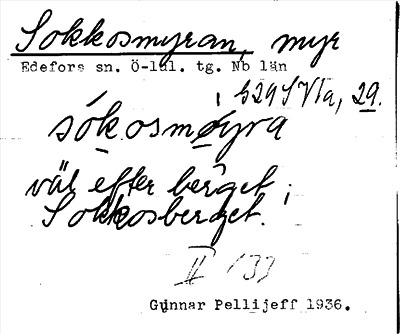 Sokkosmyran, myr
Edefors sn. Ö-lul. tg. Nb län
S29SVIa, 29.
sókosmøyra
väl efter berget i
Sokkosberget.
II 133
Gunnar Pellijeff 1936.